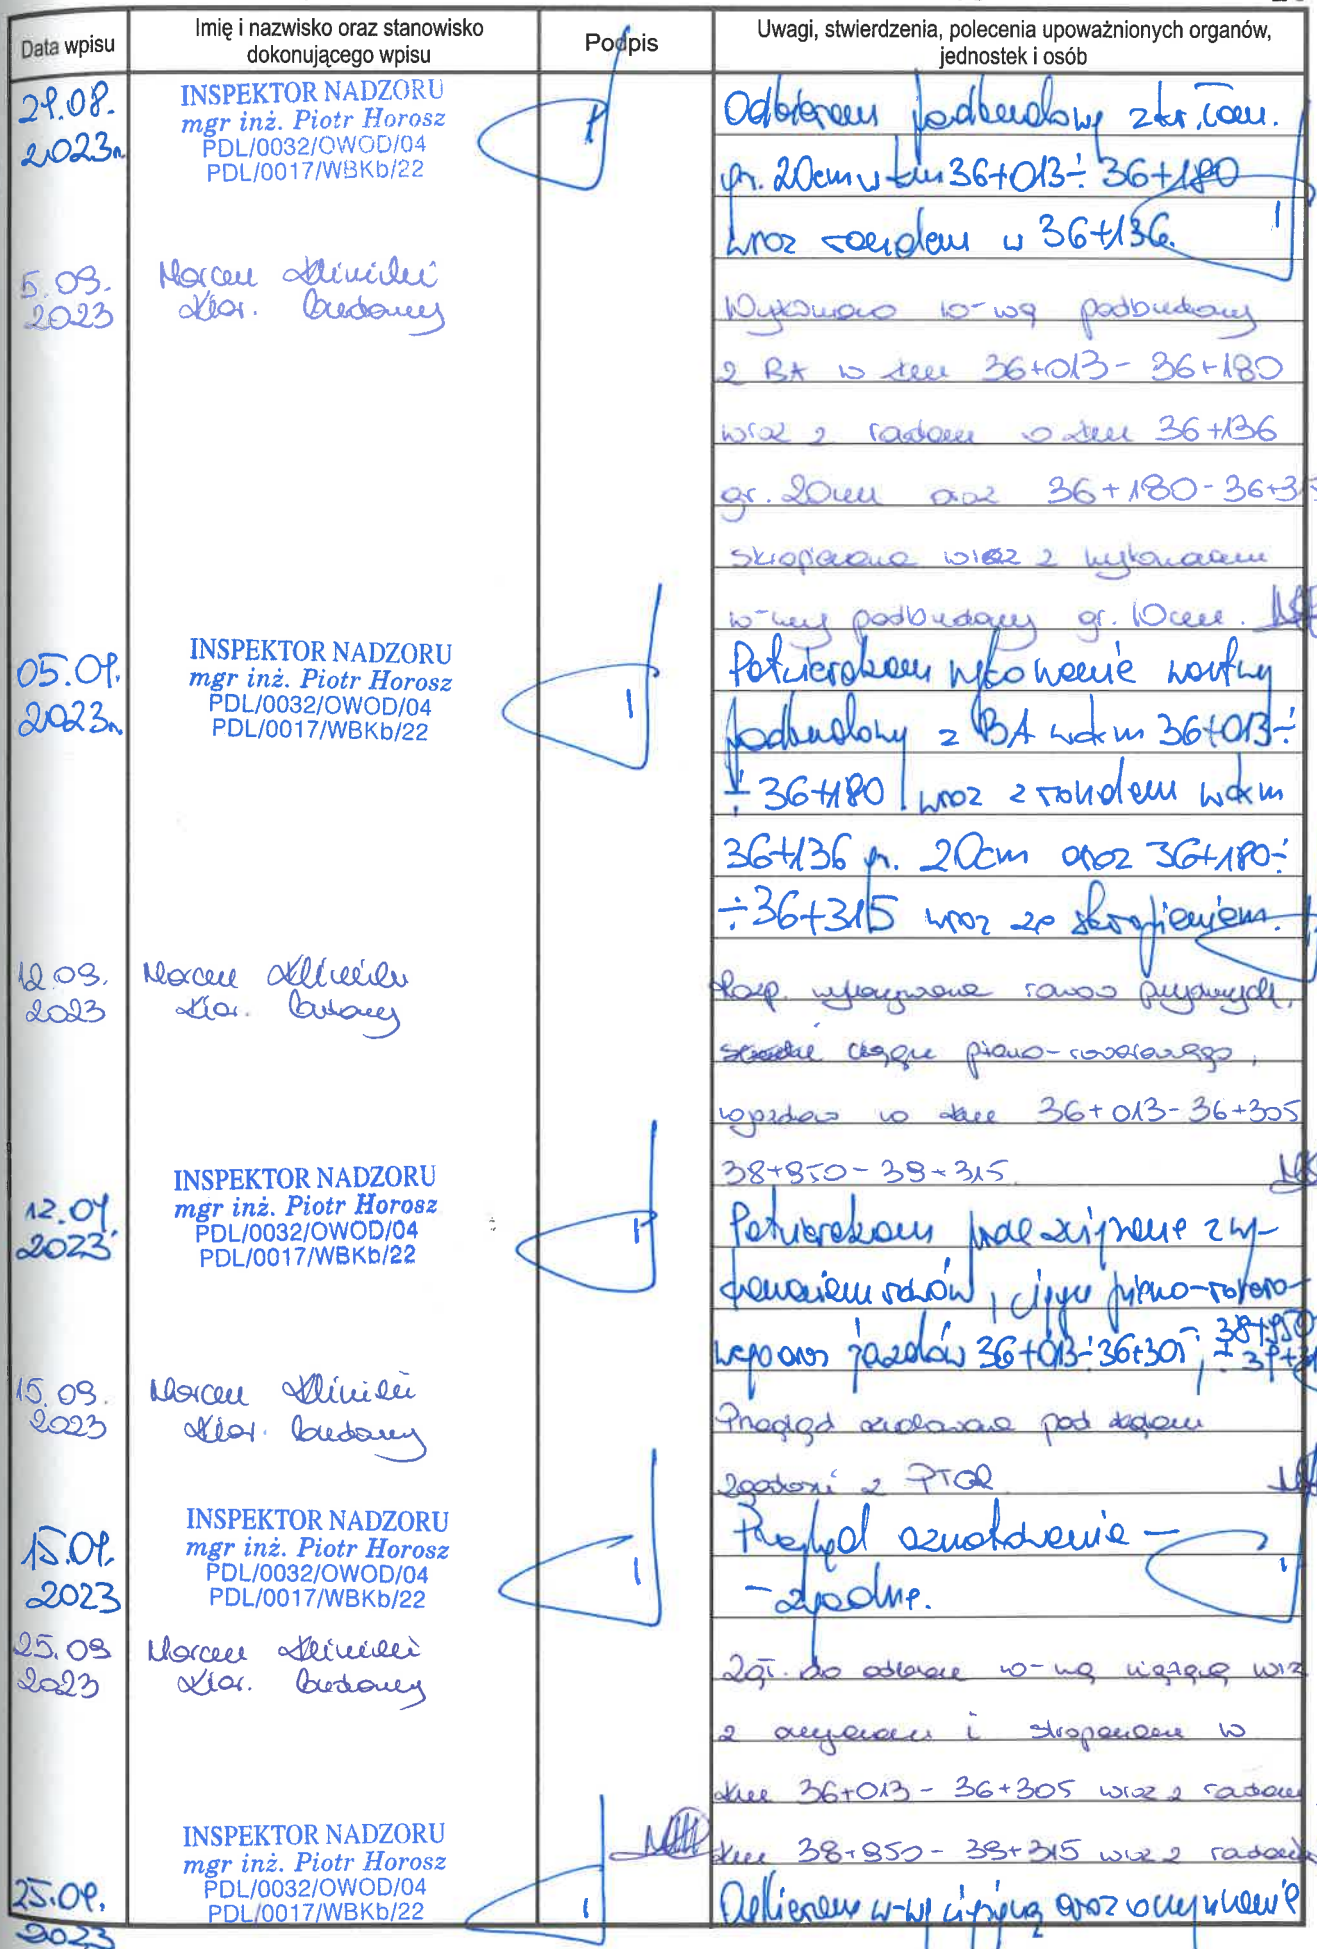 Data wpisu
Imię i nazwisko oraz stanowisko
dokonującego wpisu
Podpis
Uwagi, stwierdzenia, polecenia upoważnionych organów,
jednostek i osób
29.08.
2023r.
INSPEKTOR NADZORU
mgr inż. Piotr Horosz
PDL/0032/OWOD/04
PDL/0017/WBKb/22
Odbieram podbudowę z kr. łam.
gr. 20cm w km 36+013÷36+180
wraz rondem w 36+136.
5.09.
2023
Marcin
Kier. budowy
Wykonano w-wę podbudowy
z BA w km 36+013-36+180
wraz z rondem w km 36+136
gr. 20cm oraz 36+180-36+3
skropienie wraz z wykonaniem
w-wy podbudowy gr. 10cm.
05.09.
2023r.
INSPEKTOR NADZORU
mgr inż. Piotr Horosz
PDL/0032/OWOD/04
PDL/0017/WBKb/22
Potwierdzam wykonanie warstwy
podbudowy z BA w km 36+013÷
÷36+180 wraz z rondem w km
36+136 gr. 20cm oraz 36+180÷
÷36+315 wraz ze skropieniem.
12.09.
2023
Marcin
Kier. budowy
Rozp. wykonywanie rowów
ciągu pieszo-rowerowego,
wjazdów w km 36+013-36+305
38+950-39+315
12.09.
2023
INSPEKTOR NADZORU
mgr inż. Piotr Horosz
PDL/0032/OWOD/04
PDL/0017/WBKb/22
Potwierdzam prace związane z wy-
konaniem rowów, ciągu pieszo-rowero-
wego oraz zjazdów 36+013÷36+305, 38+950
÷39+
15.09.
2023
Marcin
Kier. budowy
Przegląd oznakowania pod kątem
zgodności z PTOR
15.09.
2023
INSPEKTOR NADZORU
mgr inż. Piotr Horosz
PDL/0032/OWOD/04
PDL/0017/WBKb/22
Przegląd oznakowania -
- zgodne.
25.09
2023
Marcin
Kier. budowy
Zgł. do odbioru w-wę wiążącą wraz
z oczyszczeniem i skropieniem w
km 36+013-36+305 wraz z rondem
km 38+950-39+315 wraz z rondem
25.09.
2023
INSPEKTOR NADZORU
mgr inż. Piotr Horosz
PDL/0032/OWOD/04
PDL/0017/WBKb/22
Odbieram w-wę wiążącą oraz oczyszczenie